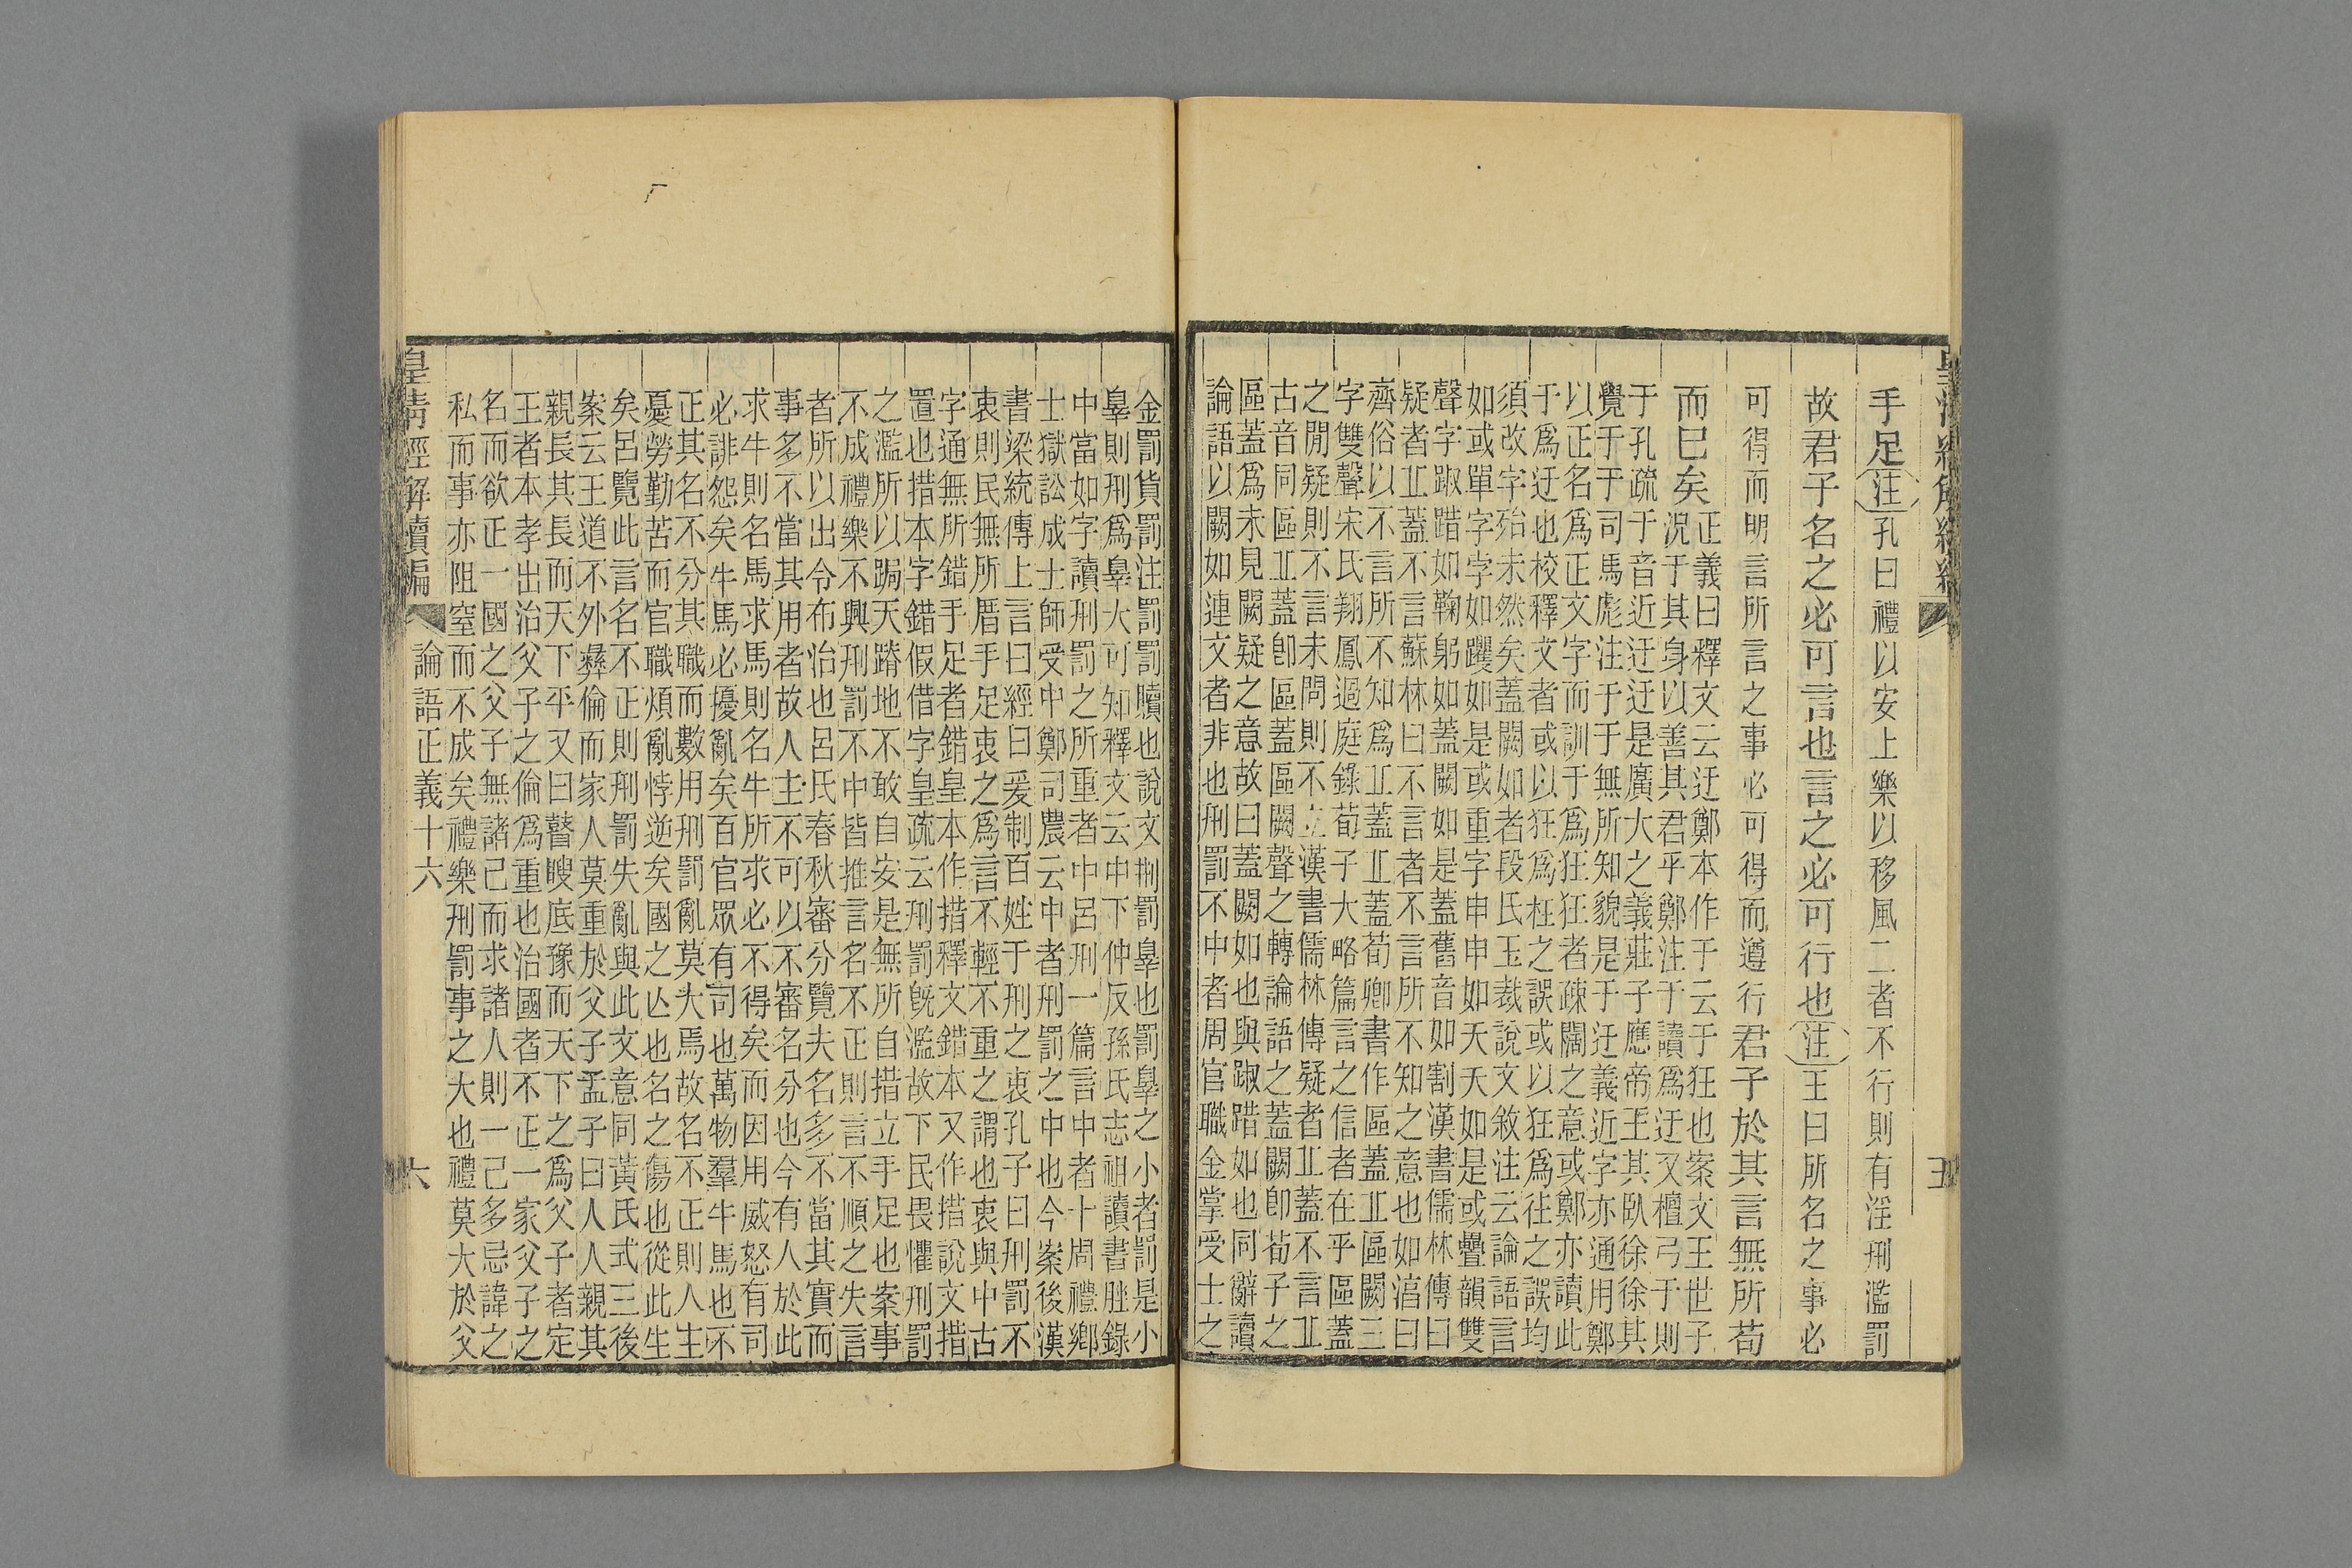 手足注孔曰禮以安上樂以移風二者不行則有淫刑濫罰
故君子名之必可言也言之必可行也注王曰所名之事必
可得而明言所言之事必可得而遵行君子於其言無所苟
而已矣
正義曰釋文云迂鄭本作于云于狂也案文王世子
況于其身以善其君乎鄭注于讀爲迂又檀弓于則
于孔疏于音近迂迂是廣大之義莊子應帝王其臥徐徐其
覺于于司馬彪注于于無所知貌是于迂義近字亦通用鄭
以正名爲正文字而訓于爲狂狂者疎闊之意或鄭亦讀此
于爲迂也校釋文者或以狂爲枉之誤或以狂爲往之誤均
須改字殆未然矣蓋闕如者段氏玉裁說文敘注云論語言
如或單字孛如躩如是或重字申申如天天如是或疊韻雙
聲字踧踖如鞠躬如蓋闕如是蓋舊音如割漢書儒林傳曰
疑者丠蓋不言蘇林曰不言者不言所不知之意也如湻曰
齊俗以不言所不知爲丠蓋丠蓋荀卿書作區蓋丠區闕三
字雙聲宋氏翔鳳過庭錄荀子大略篇言之信者在乎區蓋
之閒疑則不言未問則不立漢書儒林傳疑者丠蓋不言丠
古音同區丠蓋卽區蓋區闕聲之轉論語之蓋闕卽荀子之
區蓋爲未見闕疑之意故曰蓋闕如也與踧踖如也同辭讀
論語以闕如連文者非也刑罰不中者周官職金掌受士之
金罰貨罰注罰罰贖也說文㓝罰辠也罰辠之小者罰是小
辠則刑爲辠大可知釋文云中下仲反孫氏志祖讀書脞錄
中當如字讀刑罰之所重者中呂刑一篇言中者十周禮鄉
士獄訟成士師受中鄭司農云中者刑罰之中也今案後漢
書梁統傳上言曰經曰爰制百姓于刑之衷孔子曰刑罰不
衷則民無所厝手足衷之爲言不輕不重之謂也衷與中古
字通無所錯手足者錯皇本作措釋文錯本又作措說文措
置也措本字錯假借字皇疏云刑罰旣濫故下民畏懼刑罰
之濫所以跼天蹐地不敢自安是無所自措立手足也案事
不成禮樂不興刑罰不中皆推言名不正則言不順之失言
者所以出令布治也呂氏春秋審分覽夫名多不當其實而
事多不當其用者故人主不可以不審名分也今有人於此
求牛則名馬求馬則名牛所求必不得矣而因用威怒有司
必誹怨矣牛馬必擾亂矣百官眾有司也萬物羣牛馬也不
正其名不分其職而數用刑罰亂莫大焉故名不正則人主
憂勞勤苦而官職煩亂悖逆矣國之亾也名之傷也從此生
矣呂覽此言名不正則刑罰失亂與此文意同黃氏式三後
案云王道不外彝倫而家人莫重於父子孟子曰人人親其
親長其長而天下平又曰瞽瞍底豫而天下之爲父子者定
王者本孝出治父子之倫爲重也治國者不正一家父子之
名而欲正一國之父子無諸己而求諸人則一己多忌諱之
私而事亦阻窒而不成矣禮樂刑罰事之大也禮莫大於父
皇清經解續編
論語正義十六
六